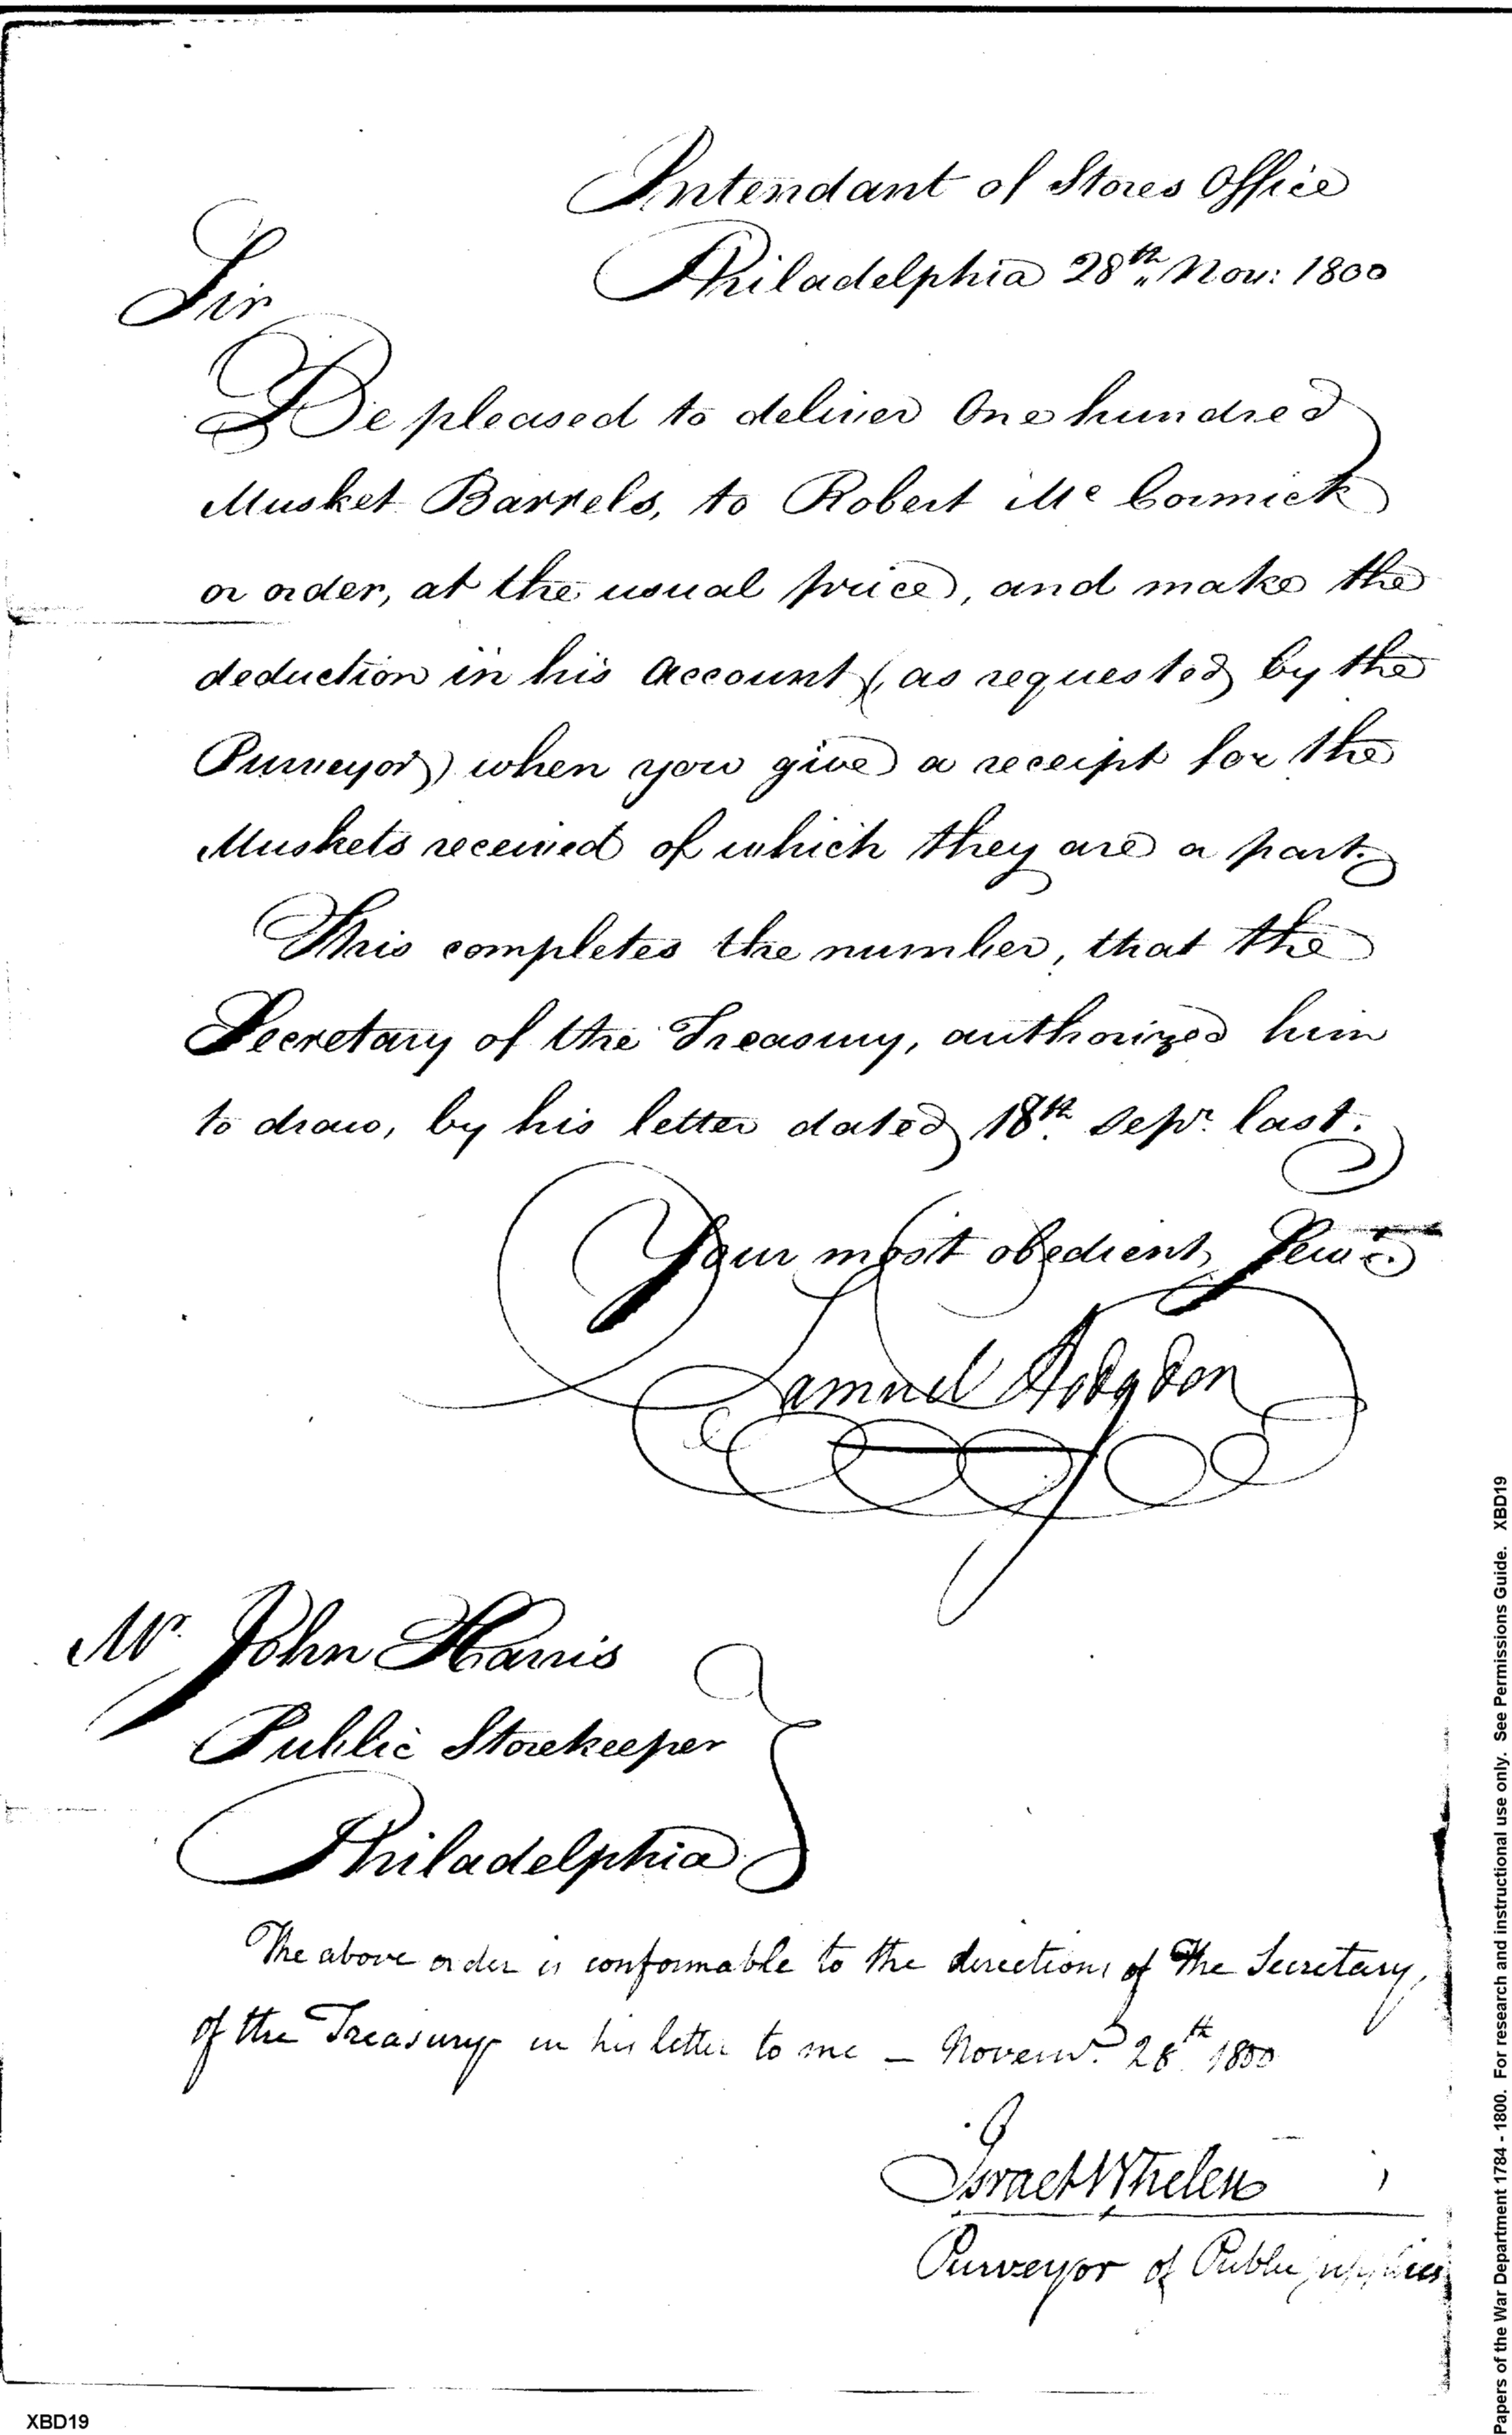 Intendant of Stores Office
Philadelphia 28th Nov: 1800
Sir
Be pleased to deliver One hundred
Musket Barrels, to Robert Mc Cormick
or order, at the usual price, and make the
deduction in his account (as requested by the
Purveyor) when you give a receipt for the
Muskets received of which they are a part.
This completes the number, that the
Secretary of the Treasury, authorized him
to draw, by his letter dated 18th. Sepr. last.
Your most obedient, Servt.
Samuel Hodgdon
Mr. John Harris
Public Storekeeper
Philadelphia
The above order is conformable to the directions of the Secretary
of the Treasury in his letter to me — Novemr. 28th 1800
Israel Whelen
Purveyor of Public Supplies
XBD19
Papers of the War Department 1784 - 1800. For research and instructional use only. See Permissions Guide. XBD19